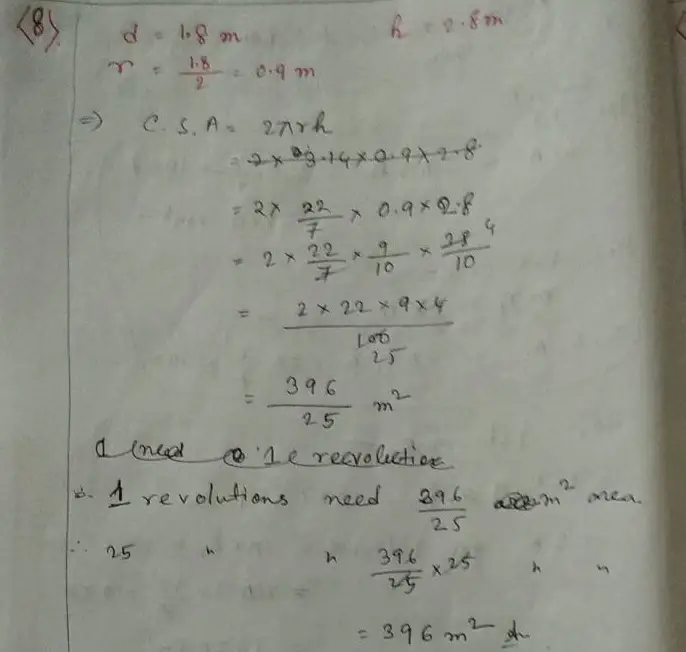 (8). d = 1.8 m h = 2.8 m
r = 1.8/2 = 0.9 m
=> C.S.A = 2πrh
= 2 × 3.14 × 0.9 × 2.8
= 2 × 22/7 × 0.9 × 2.8
= 2 × 22/7 × 9/10 × 28/10 4
= 2 × 22 × 9 × 4 / 100
25
= 396/25 m²
need revolution
∴ 1 revolutions need 396/25 m² area.
∴ 25 " " 396/25 × 25 " "
= 396 m²